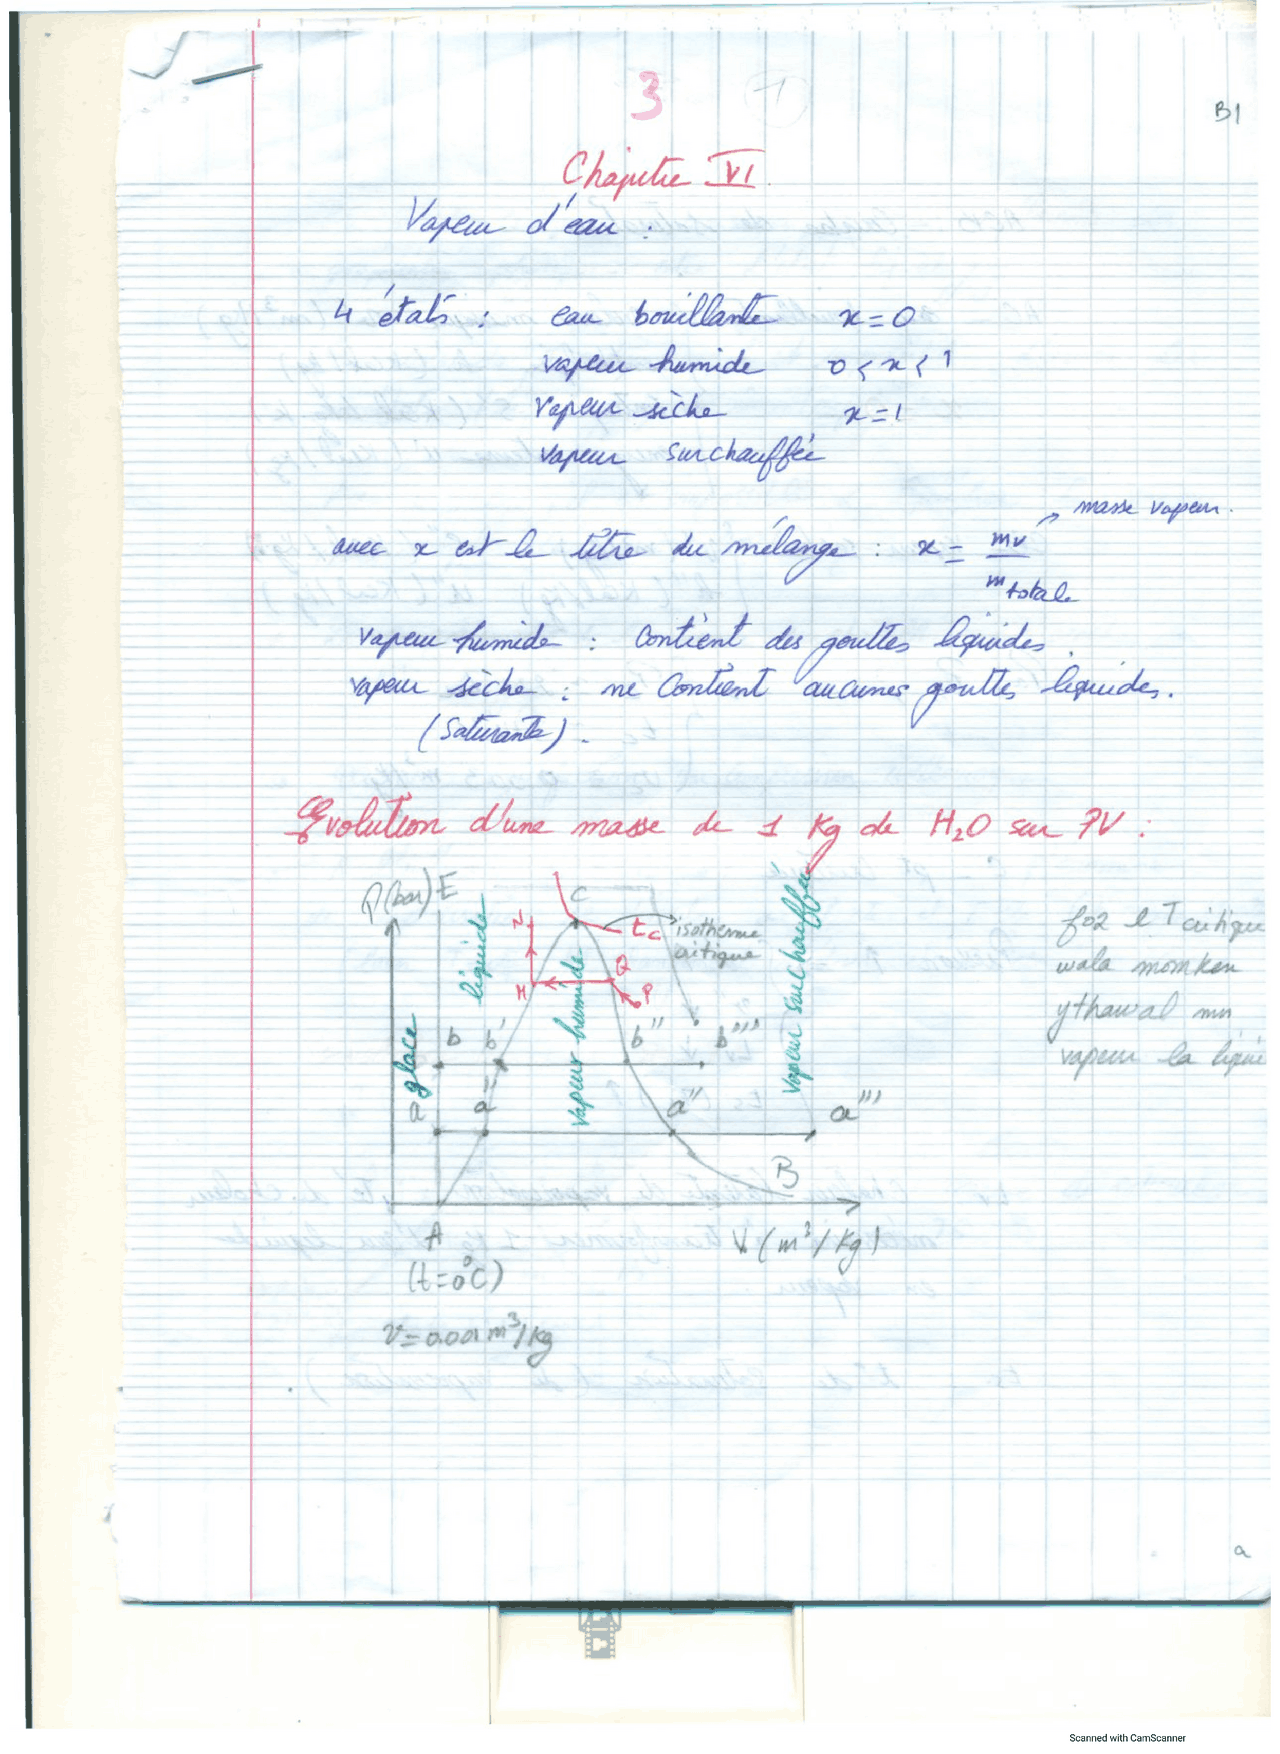 3
1
B1
Chapitre VI.
Vapeur d'eau :
4 états : eau bouillante x=0
vapeur humide 0<x<1
vapeur sèche x=1
vapeur surchauffée
masse vapeur.
avec x est le titre du mélange : x = mv / m totale
vapeur humide : Contient des gouttes liquides.
vapeur sèche : ne Contient aucunes gouttes liquides.
(Saturante).
Evolution d'une masse de 1 Kg de H2O sur PV :
P(bar) E
C
liquide
glace
vapeur humide
vapeur surchauffée
N
tc
isotherme
critique
M
Q
P
b b' b'' b'''
a a' a'' a'''
B
A
V (m³/Kg)
(t=0°C)
v=0.001 m³/Kg
fo2 l T critique
wala momken
ythawal mn
vapeur la liqui
a
Scanned with CamScanner